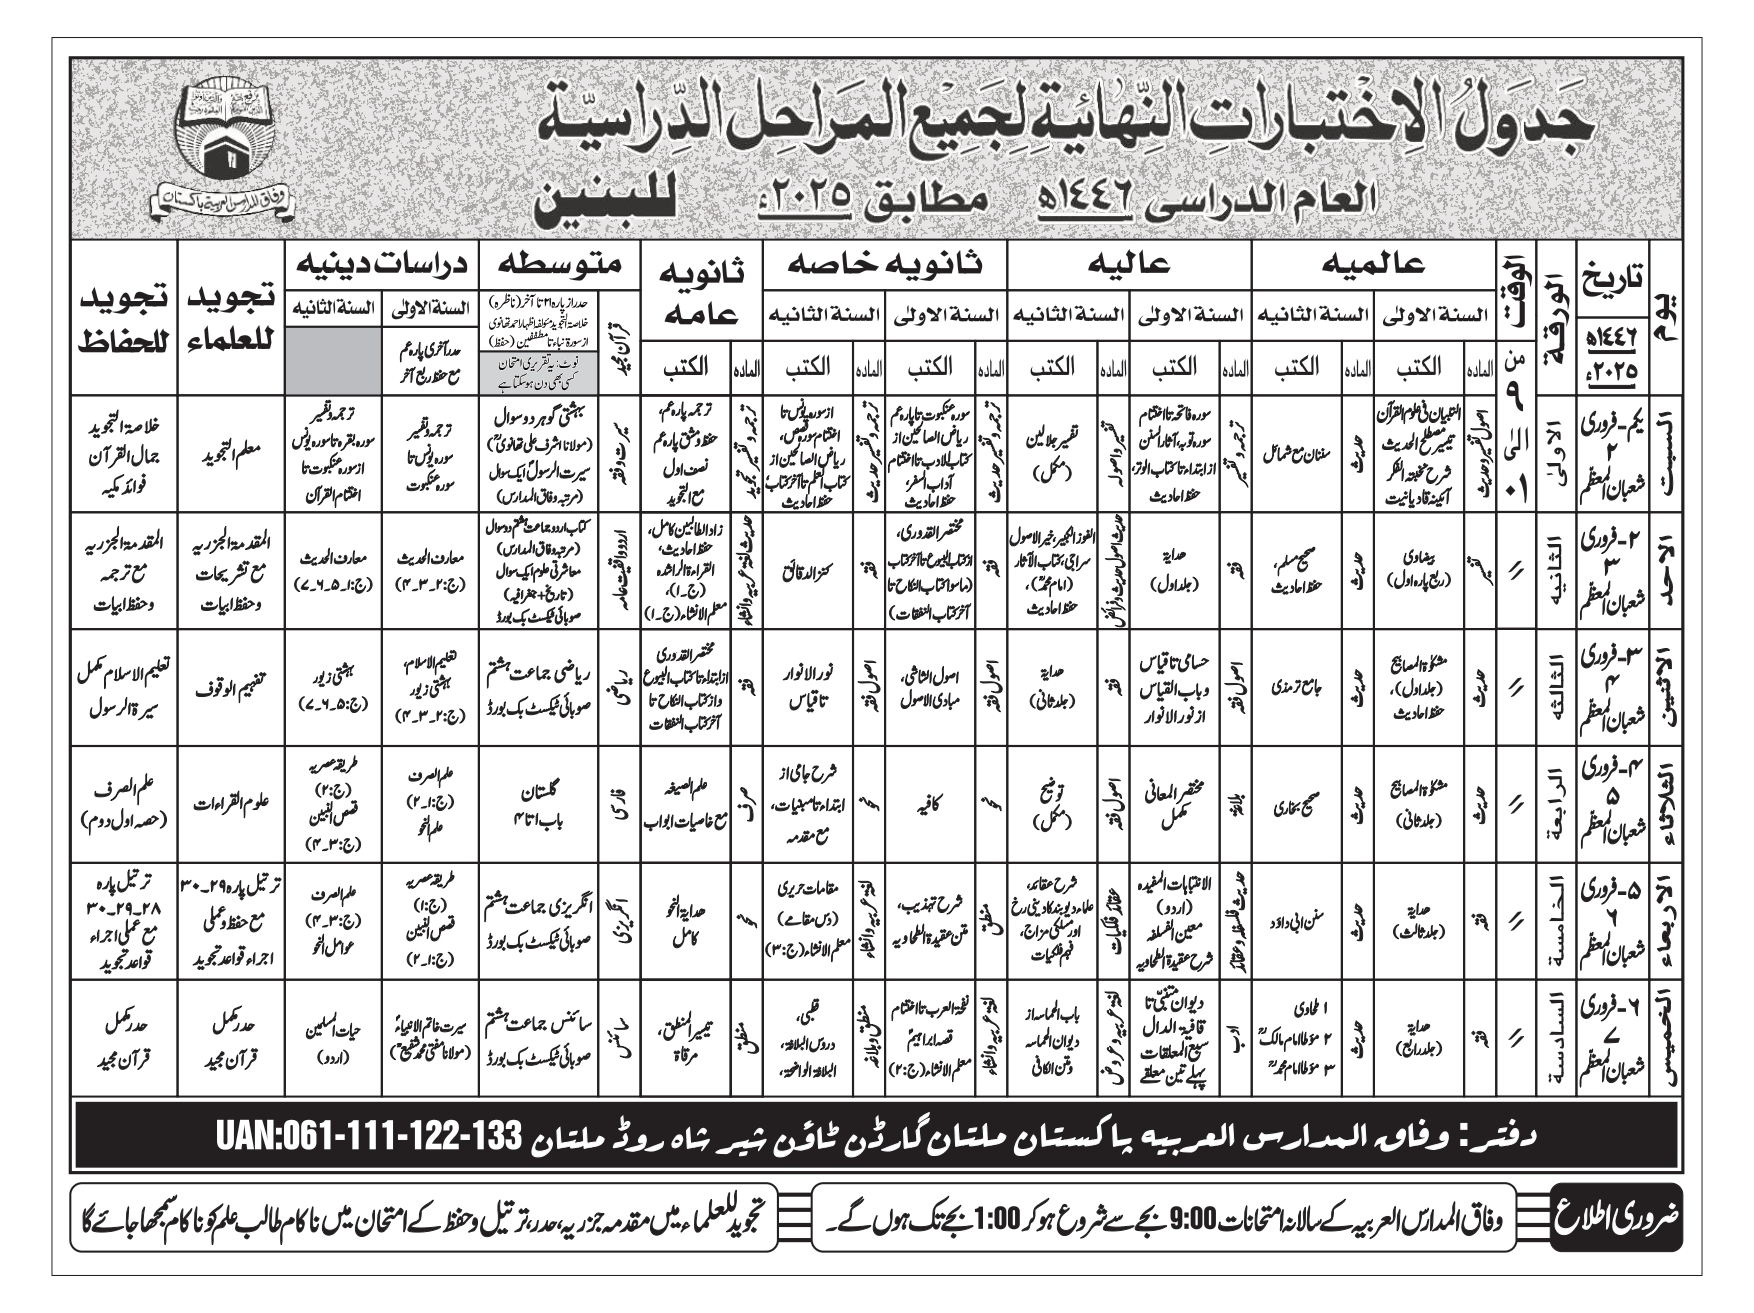 جَدوَلُ الاِختباراتِ النِّهائيةِ لِجميعِ المَراحِل الدِّراسيّة
العام الدراسی ١٤٤٦ھ مطابق ٢٠٢٥ء للبنين
وفاق المدارس العربیہ پاکستان
یوم
تاریخ
١٤٤٦ھ
٢٠٢٥ء
الورقة
الوقت
من ۹ الی ۱
عالمیہ
عالیہ
ثانویہ خاصہ
ثانویہ عامہ
متوسطہ
دراسات دینیہ
تجوید للعلماء
تجوید للحفاظ
السنة الاولیٰ
السنة الثانیہ
السنة الاولیٰ
السنة الثانیہ
السنة الاولیٰ
السنة الثانیہ
قرآن مجید
حدر از پارہ ۲۱ تا آخر (ناظرہ)
خلاصۃ التجوید مؤلفہ اظہار احمد تھانوی
از سورۃ نباء تا مطففین (حفظ)
نوٹ: یہ تقریری امتحان
کسی بھی دن ہوسکتا ہے
السنة الاولیٰ
السنة الثانیہ
حدر آخری پارہ عم
مع حفظ ربع آخر
المادہ
الکتب
المادہ
الکتب
المادہ
الکتب
المادہ
الکتب
المادہ
الکتب
المادہ
الکتب
المادہ
الکتب
السبت
یکم-فروری
۲
شعبان المعظم
الاولیٰ
اصول تفسیر وحدیث
التبیان فی علوم القرآن
تیسیر مصطلح الحدیث
شرح نخبۃ الفکر
آئینہ قادیانیت
حدیث
سننان مع شمائل
ترجمہ و تفسیر
سورہ فاتحہ تا اختتام
سورہ توبہ، آثار السنن
از ابتداء تا کتاب الوتر،
حفظ احادیث
تفسیر واصولہ
تفسیر جلالین
(مکمل)
ترجمہ و تفسیر حدیث
سورہ عنکبوت تا پارہ عم
ریاض الصالحین از
کتاب الادب تا اختتام
آداب السفر،
حفظ احادیث
ترجمہ و تفسیر حدیث
از سورہ یونس تا
اختتام سورہ قصص،
ریاض الصالحین از
کتاب العلم تا آخر کتاب،
حفظ احادیث
ترجمہ و تفسیر تجوید
ترجمہ پارہ عم،
حفظ و مشق پارہ عم
نصف اول
مع التجوید
سیرت و فقہ
بہشتی گوہر دو سوال
(مولانا اشرف علی تھانویؒ)
سیرت الرسولؐ ایک سوال
(مرتبہ وفاق المدارس)
ترجمہ و تفسیر
سورہ یونس تا
سورہ عنکبوت
ترجمہ و تفسیر
سورہ بقرہ تا سورہ یونس
از سورہ عنکبوت تا
اختتام القرآن
معلم التجوید
خلاصۃ التجوید
جمال القرآن
فوائد مکیہ
الاحد
۲-فروری
۳
شعبان المعظم
الثانیہ
//
تفسیر
بیضاوی
(ربع پارہ اول)
حدیث
صحیح مسلم،
حفظ احادیث
فقہ
ھدایۃ
(جلد اول)
حدیث اصول حدیث و فرائض
الفوز الکبیر، خیر الاصول
سراجی، کتاب الآثار
(امام محمدؒ)،
حفظ احادیث
فقہ
مختصر القدوری،
از کتاب البیوع تا آخر کتاب
(ماسوا کتاب النکاح تا
آخر کتاب النفقات)
فقہ
کنز الدقائق
حدیث لغۃ عربیہ وانشاء
زاد الطالبین کامل،
حفظ احادیث،
القراءۃ الراشدہ
(ج۔۱)،
معلم الانشاء (ج۔۱)
اردو واقفیت عامہ
کتاب اردو جماعت ہشتم دو سوال
(مرتبہ وفاق المدارس)
معاشرتی علوم ایک سوال
(تاریخ + جغرافیہ)
صوبائی ٹیکسٹ بک بورڈ
معارف الحدیث
(ج:۲۔۳۔۴)
معارف الحدیث
(ج:۱۔۵۔۶۔۷)
المقدمۃ الجزریہ
مع تشریحات
و حفظ ابیات
المقدمۃ الجزریہ
مع ترجمہ
و حفظ ابیات
الاثنین
۳-فروری
۴
شعبان المعظم
الثالثہ
//
حدیث
مشکوٰۃ المصابیح
(جلد اول)،
حفظ احادیث
حدیث
جامع ترمذی
اصول فقہ
حسامی تا قیاس
و باب القیاس
از نور الانوار
فقہ
ھدایۃ
(جلد ثانی)
اصول فقہ
اصول الشاشی،
مبادی الاصول
اصول فقہ
نور الانوار
تا قیاس
فقہ
مختصر القدوری
از ابتداء تا کتاب البیوع
و از کتاب النکاح تا
آخر کتاب النفقات
ریاضی
ریاضی جماعت ہشتم
صوبائی ٹیکسٹ بک بورڈ
تعلیم الاسلام،
بہشتی زیور
(ج:۲۔۳۔۴)
بہشتی زیور
(ج:۵۔۶۔۷)
تفہیم الوقوف
تعلیم الاسلام مکمل
سیرۃ الرسول
الثلاثاء
۴-فروری
۵
شعبان المعظم
الرابعة
//
حدیث
مشکوٰۃ المصابیح
(جلد ثانی)
حدیث
صحیح بخاری
بلاغۃ
مختصر المعانی
مکمل
اصول فقہ
توضیح
(مکمل)
نحو
کافیہ
نحو
شرح جامی از
ابتداء تا مبنیات،
مع مقدمہ
صرف
علم الصیغہ
مع خاصیات ابواب
فارسی
گلستان
باب ۱ تا ۴
علم الصرف
(ج:۱۔۲)
علم النحو
طریقہ عصریہ
(ج:۲)
قصص النبیین
(ج:۳۔۴)
علوم القراءات
علم الصرف
(حصہ اول دوم)
الاربعاء
۵-فروری
۶
شعبان المعظم
الخامسة
//
فقہ
ھدایۃ
(جلد ثالث)
حدیث
سنن ابی داؤد
حدیث فلسفہ و عقائد
الانتباہات المفیدہ
(اردو)
معین الفلسفہ
شرح عقیدۃ الطحاویہ
عقائد فلکیات
شرح عقائد،
علماء دیوبند کا دینی رخ
اور مسلکی مزاج،
فہم فلکیات
منطق
شرح تہذیب،
متن عقیدۃ الطحاویہ
لغۃ عربیہ وانشاء
مقامات حریری
(دس مقامے)
معلم الانشاء (ج:۳)
نحو
ھدایۃ النحو
کامل
انگریزی
انگریزی جماعت ہشتم
صوبائی ٹیکسٹ بک بورڈ
طریقہ عصریہ
(ج:۱)
قصص النبیین
(ج:۱۔۲)
علم الصرف
(ج:۳۔۴)
عوامل النحو
ترتیل پارہ ۲۹۔۳۰
مع حفظ و عملی
اجراء قواعد تجوید
ترتیل پارہ
۲۸۔۲۹۔۳۰
مع عملی اجراء
قواعد تجوید
الخمیس
۶-فروری
۷
شعبان المعظم
السادسة
//
فقہ
ھدایۃ
(جلد رابع)
حدیث
۱ طحاوی
۲ مؤطا امام مالکؒ
۳ مؤطا امام محمدؒ
ادب
دیوان متنبّی تا
قافیۃ الدال
سبع المعلقات
پہلے تین معلقے
لغۃ عربیہ و عروض
باب الحماسہ از
دیوان الحماسہ
و متن الکافی
لغۃ عربیہ وانشاء
نفحۃ العرب تا اختتام
قصہ ابراہیمؑ
معلم الانشاء (ج:۲)
منطق و بلاغہ
قطبی،
دروس البلاغۃ،
البلاغۃ الواضحۃ،
منطق
تیسیر المنطق،
مرقاۃ
سائنس
سائنس جماعت ہشتم
صوبائی ٹیکسٹ بک بورڈ
سیرت خاتم الانبیاءؐ
(مولانا مفتی محمد شفیعؒ)
حیات المسلمین
(اردو)
حدر مکمل
قرآن مجید
حدر مکمل
قرآن مجید
دفتر: وفاق المدارس العربیہ پاکستان ملتان گارڈن ٹاؤن شیر شاہ روڈ ملتان UAN:061-111-122-133
ضروری اطلاع
وفاق المدارس العربیہ کے سالانہ امتحانات 9:00 بجے سے شروع ہوکر 1:00 بجے تک ہوں گے۔
تجوید للعلماء میں مقدمہ جزریہ، حدر، ترتیل و حفظ کے امتحان میں ناکام طالب علم کو ناکام سمجھا جائے گا